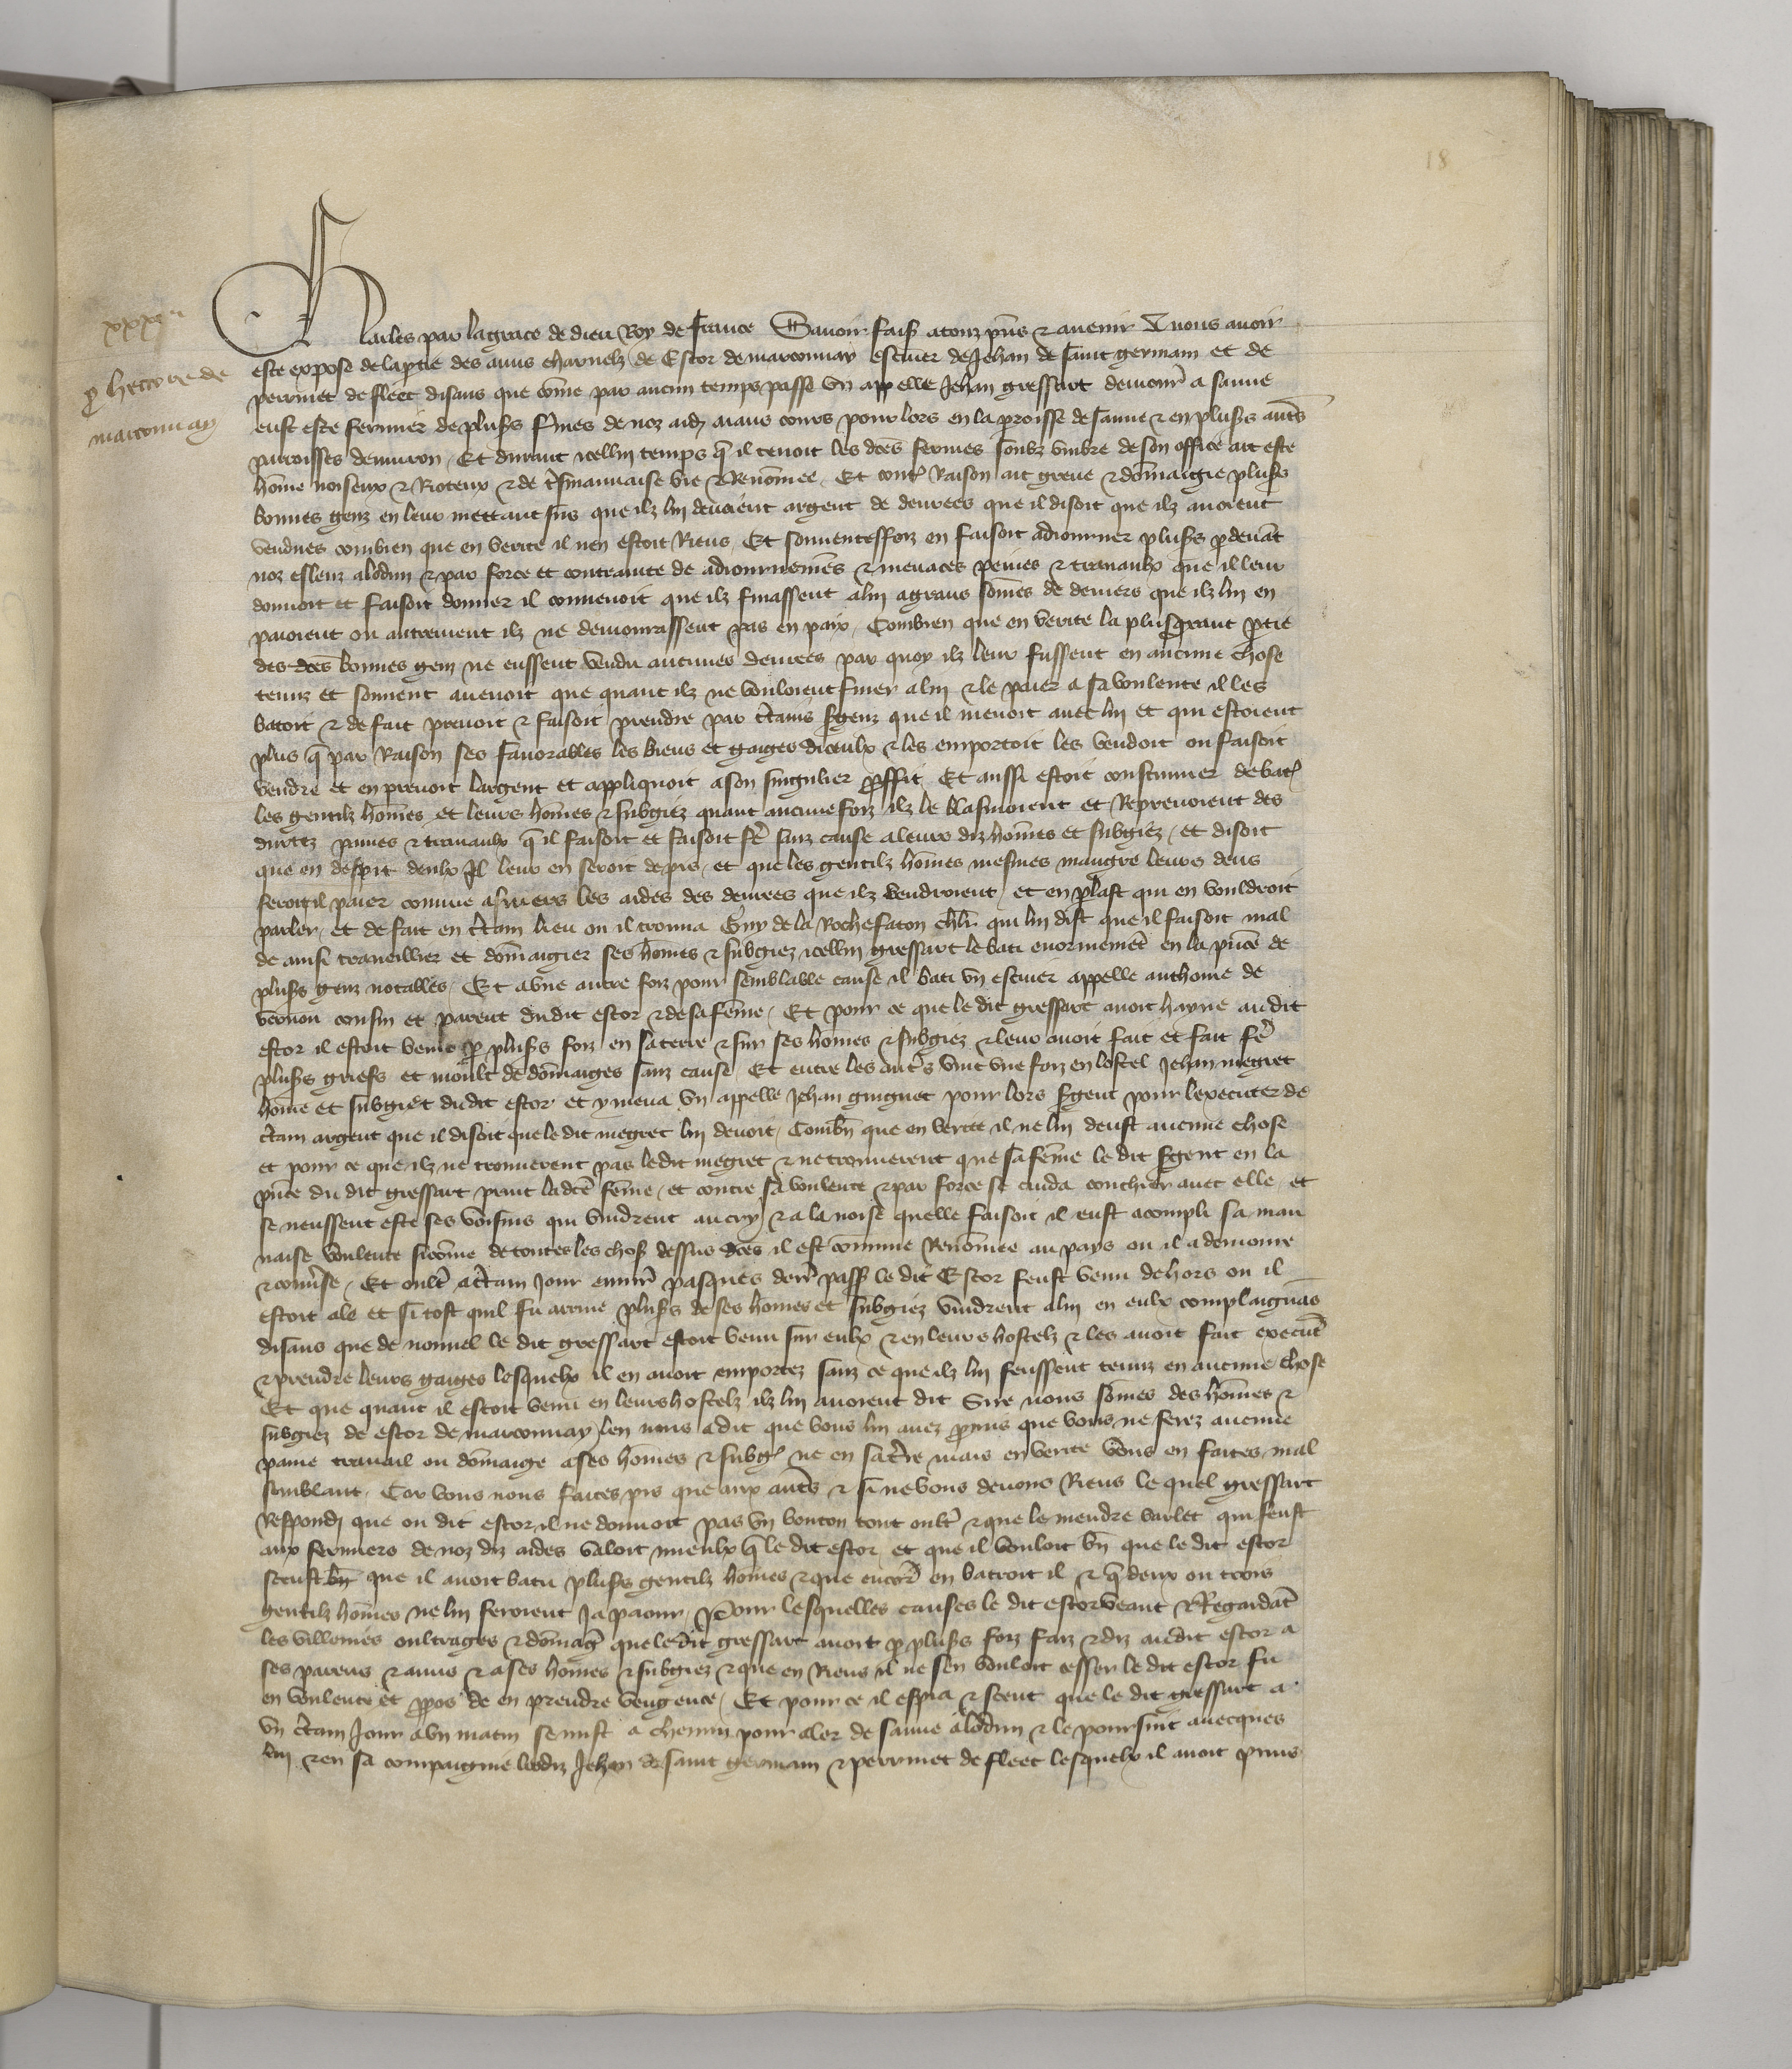 18
xxxv
Charles par la grace de dieu Roy de France Savoir faisons a touz pñs & avenir A nous avoir
p̃ hectore de
marconnay
este expose de la ptie des amis charnelz de Estor de marconnay escuier de Jehan de saint germain et de
perrinet de fleec disans que cõme par aucun temps passe un appelle Jehan gressart demour̃ a sanue
eust este fermier de plus̃s fmes de noz aid aians cours pour lors en la parroisse de sanue & en plus̃s aut̃s
parroisses denuiron / Et durant icellui temps q̃ il tenoit les dc̃es fermes soubz umbre de son office ait este
hõme noiseux & Rioteux & de tresmauuaise vie & Renõmee / Et cont̃ Raison ait greue & dõmaigie plus̃s
bonnes genz en leur mettant sus que ilz lui deuoient argent de denrees que il disoit que ilz auoient
vendues combien que en verite il nen estoit Riens / Et souuentesfoiz en faisoit adiourner plus̃s p̃deuãt
noz esleuz a lodun & par force et contrainte de adiournemẽs & menaces peines & trauaulx que il leur
donnoit et faisoit donner il conuenoit que ilz finassent a lui a grans sõmes de deniers que ilz lui en
paioient ou autrement ilz ne demourassent pas en paix / Combien que en verite la plusgrant p̃tie
des dc̃es bonnes genz ne eussent vendu aucunes denrees par quoy ilz leur fussent en aucune chose
tenuz et souuent auenoit que quant ilz ne vouloient finer a lui & le paier a sa voulente il les
batoit & de fait prenoit & faisoit prendre par c̃tains s̃genz que il menoit auec lui et qui estoient
plus q̃ par Raison ses fauorables les biens et gaiges diceulx & les emportoit les vendoit ou faisoit
vendre et en prenoit largent et appliquoit a son singulier p̃ffit / Et aussi estoit coustumier de bat̃
les gentilz hõmes et leurs hõmes & subgiez quant aucunefoiz ilz le blasmoient et Reprenoient des
durtez peines & trauaulx q̃ il faisoit et faisoit fẽ sanz cause a leurs diz hõmes et subgiez / et disoit
que en despit deulx Il leur en feroit de pis / et que les gentilz hõmes mesmes maugre leurs dens
feroit il paier comme aus̃ers les aides des denrees que ilz vendroient / et en plast qui en vouldroit
parler / et de fait en c̃tain lieu ou il trouua Guy de la Rochefaton chl̃r qui lui dist que il faisoit mal
de ainsi traueillier et dõmaigier ses hõmes & subgiez icellui gressart le bati enormemẽt en la pñce de
plus̃s genz notables / Et a une autre foiz pour semblable cause il bati un escuier appelle anthoine de
vernou cousin et parent dudit estor & de sa fẽme / Et pour ce que le dit gressart auoit hayne audit
estor il estoit venu p̃ plus̃s foiz en sa terre & sur ses hõmes & subgiez & leur auoit fait et fait fẽ
plus̃s griefs et moult de dõmaiges sanz cause / Et entre les aut̃s vint une foiz en lostel Jehan megret
hõme et subgiet dudit estor et y mena un appelle Jehan guignet pour lors s̃gent pour lexecuter de
c̃tain argent que il disoit que le dit megret lui deuoit / Combñ que en verite il ne lui deust aucune chose
et pour ce que ilz ne trouuerent pas le dit megret & ne trouuerent que sa fẽme le dit s̃gent en la
pñce du dit gressart print la dc̃e fẽme / et contre sa voulente & par force se cuida couchier auec elle / et
se neussent este ses voisins qui vindrent au cry & a la noise quelle faisoit il eust acompli sa mau
uaise voulente sicõme de toutes les chos̃ dessus dc̃es il est cõmune Renõmee au pays ou il a demoure
& conu̾se / Et oult̃ a c̃tain jour enuir̃ pasques derr̃ pass̃ le dit Estor feust venu dehors ou il
estoit ale et si tost quil fu arriue plus̃s de ses hõmes et subgiez vindrent a lui en eulx complaignãs
disans que de nouuel le dit gressart estoit venu sur eulx & en leurs hostelz & les auoit fait execut̃
& prendre leurs gaiges lesquelx il en auoit emportez sanz ce que ilz lui feussent tenuz en aucune chose
Et que quant il estoit venu en leurs hostelz ilz lui auoient dit Sire nous sõmes des hõmes &
subgiez de estor de marconnay len nous a dit que vous lui auez p̃mis que vous ne ferez aucune
paine trauail ou dõmaige a ses hõmes & subg̃ ne en sa t̃re mais en verite vous en faites mal
semblant / Car vous nous faites pis que aux aut̃s & si ne vous deuons Riens le quel gressart
Respondi que ou dit estor il ne donnoit pas un bouton tout oult̃ & que le mendre varlet qui feust
aux fermiers de noz diz aides valoit mieulx q̃ le dit estor et que il vouloit bñ que le dit estor
sceust bñ que il auoit batu plus̃s gentilz hõmes & que encor̃ en batroit il & q̃ deux ou trois
gentilz hõmes ne lui feroient Ja paour / Pour lesquelles causes le dit estor veant & Regardãt
les villenies oultrages & dõmaig̃ que le dit gressart auoit p̃ plus̃s foiz faiz & diz audit estor a
ses parens & amis & a ses hõmes & subgiez & que en Riens il ne sen vouloit cesser le dit estor fu
en voulente et p̃pos de en prendre vengence / Et pour ce il espia & sceut que le dit gressart a
un c̃tain Jour a un matin se mist a chemin pour aler de sanue a lodun & le poursuit auecques
lui & en sa compaignie lesdiz Jehan de saint germain & perrinet de fleec lesquelx il auoit p̃mis